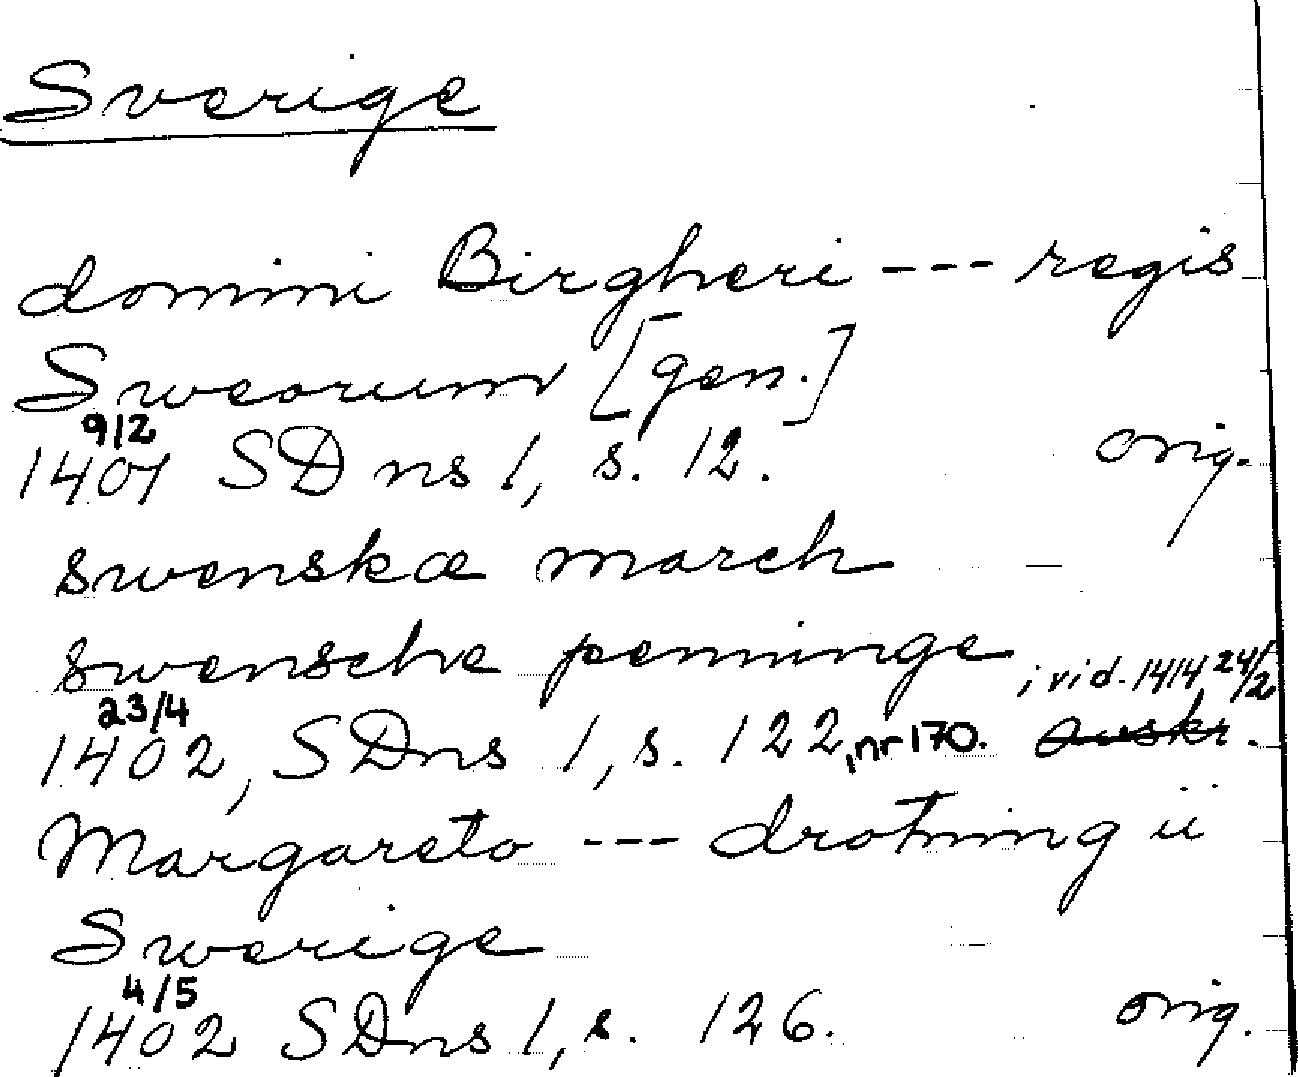 Sverige
domini Birgheri --- regis
Sweorum [gen.]
9/2
1401 SD ns 1, s. 12. orig.
swenskæ march
swensche penninge
; vid. 1414 24/2
23/4
1402, SDns 1, s. 122, nr 170. avskr.
Margareta --- drotning ii
Swerige
4/5
1402 SDns 1, s. 126. orig.